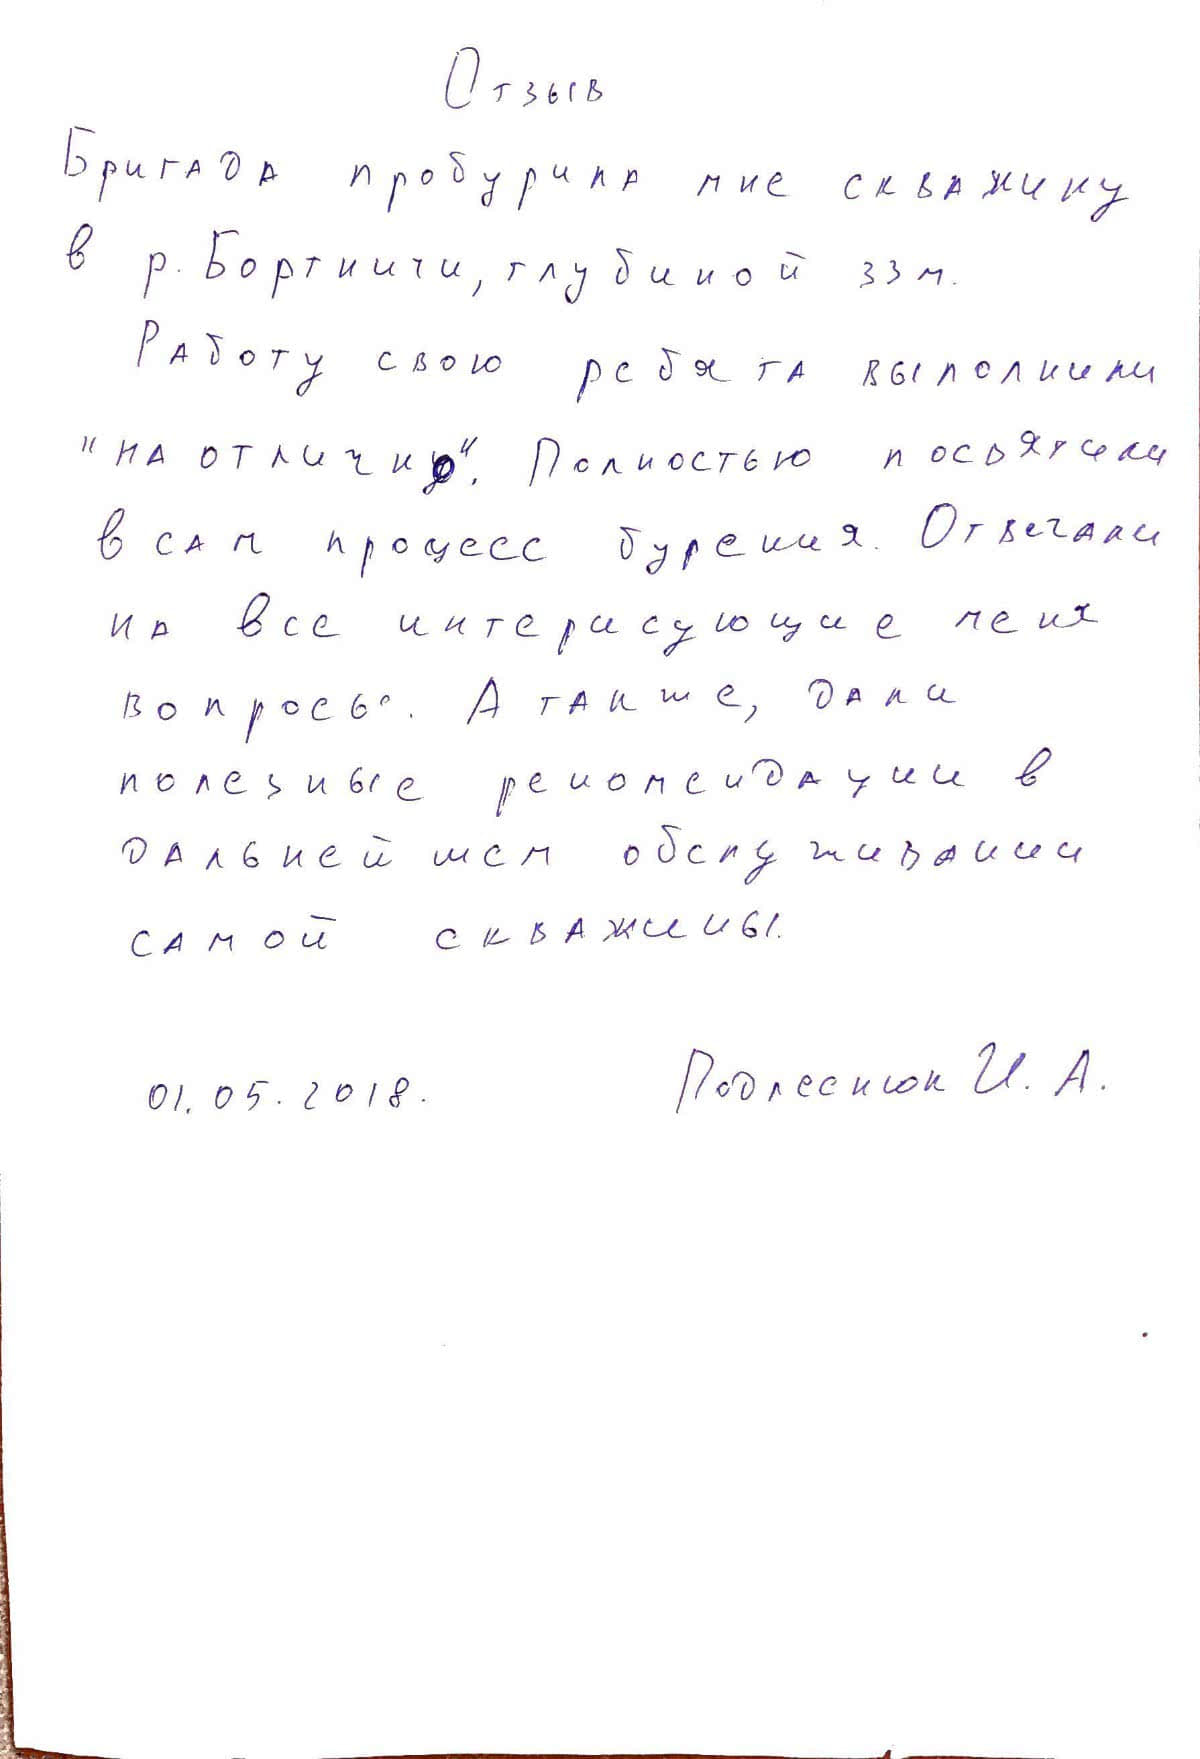 Отзыв
Бригада пробурила мне скважину
в р. Бортничи, глубиной 33м.
Работу свою ребята выполнили
"на отлично". Полностью посвятили
в сам процесс бурения. Отвечали
на все интерисующие меня
вопросы. А также, дали
полезные рекомендации в
дальнейшем обслуживании
самой скважины.
01.05.2018. Подлеснюк И. А.